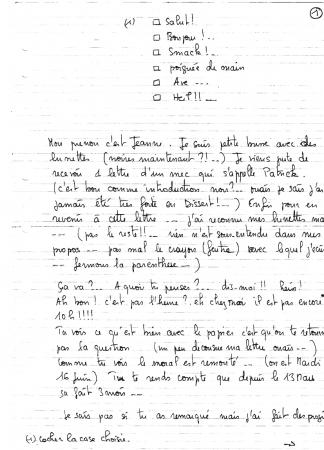 1
(1) □ Salut!
□ Bonjour!..
□ Smack!..
□ poignée de main
□ Ave ...
□ Hei!! __
Mon prénom c'est Jeanne. Je suis petite brune avec des
lunettes (noires maintenant?!..) Je viens juste de
recevoir 1 lettre d'un mec qui s'appelle Patrick.
(c'est bon comme introduction non?.. ouais je sais j'ai
jamais été très forte en dissert!..) Enfin pour en
revenir à cette lettre -- j'ai reconnu mes lunettes ma
-- (pas le reste!!.. rien n'est sous entendu dans mes
propos -- pas mal le crayon (feutre) avec lequel j'écris
-- fermons la parenthèse --)
Ça va?.. A quoi tu penses?... dis-moi!! hein!
Ah bon! c'est pas l'heure?. eh chez moi il est pas encore
10h!!!!
Tu vois ce qu'est bien avec le papier c'est qu'on te retourne
pas la question (un peu décousue ma lettre ouais --)
comme tu vois le moral est remonté -- (on est Mardi
16 juin) Tu te rends compte que depuis le 13 Mars
ça fait 3 mois --
Je sais pas si tu as remarqué mais j'ai fait des
(1) cocher la case choisie.